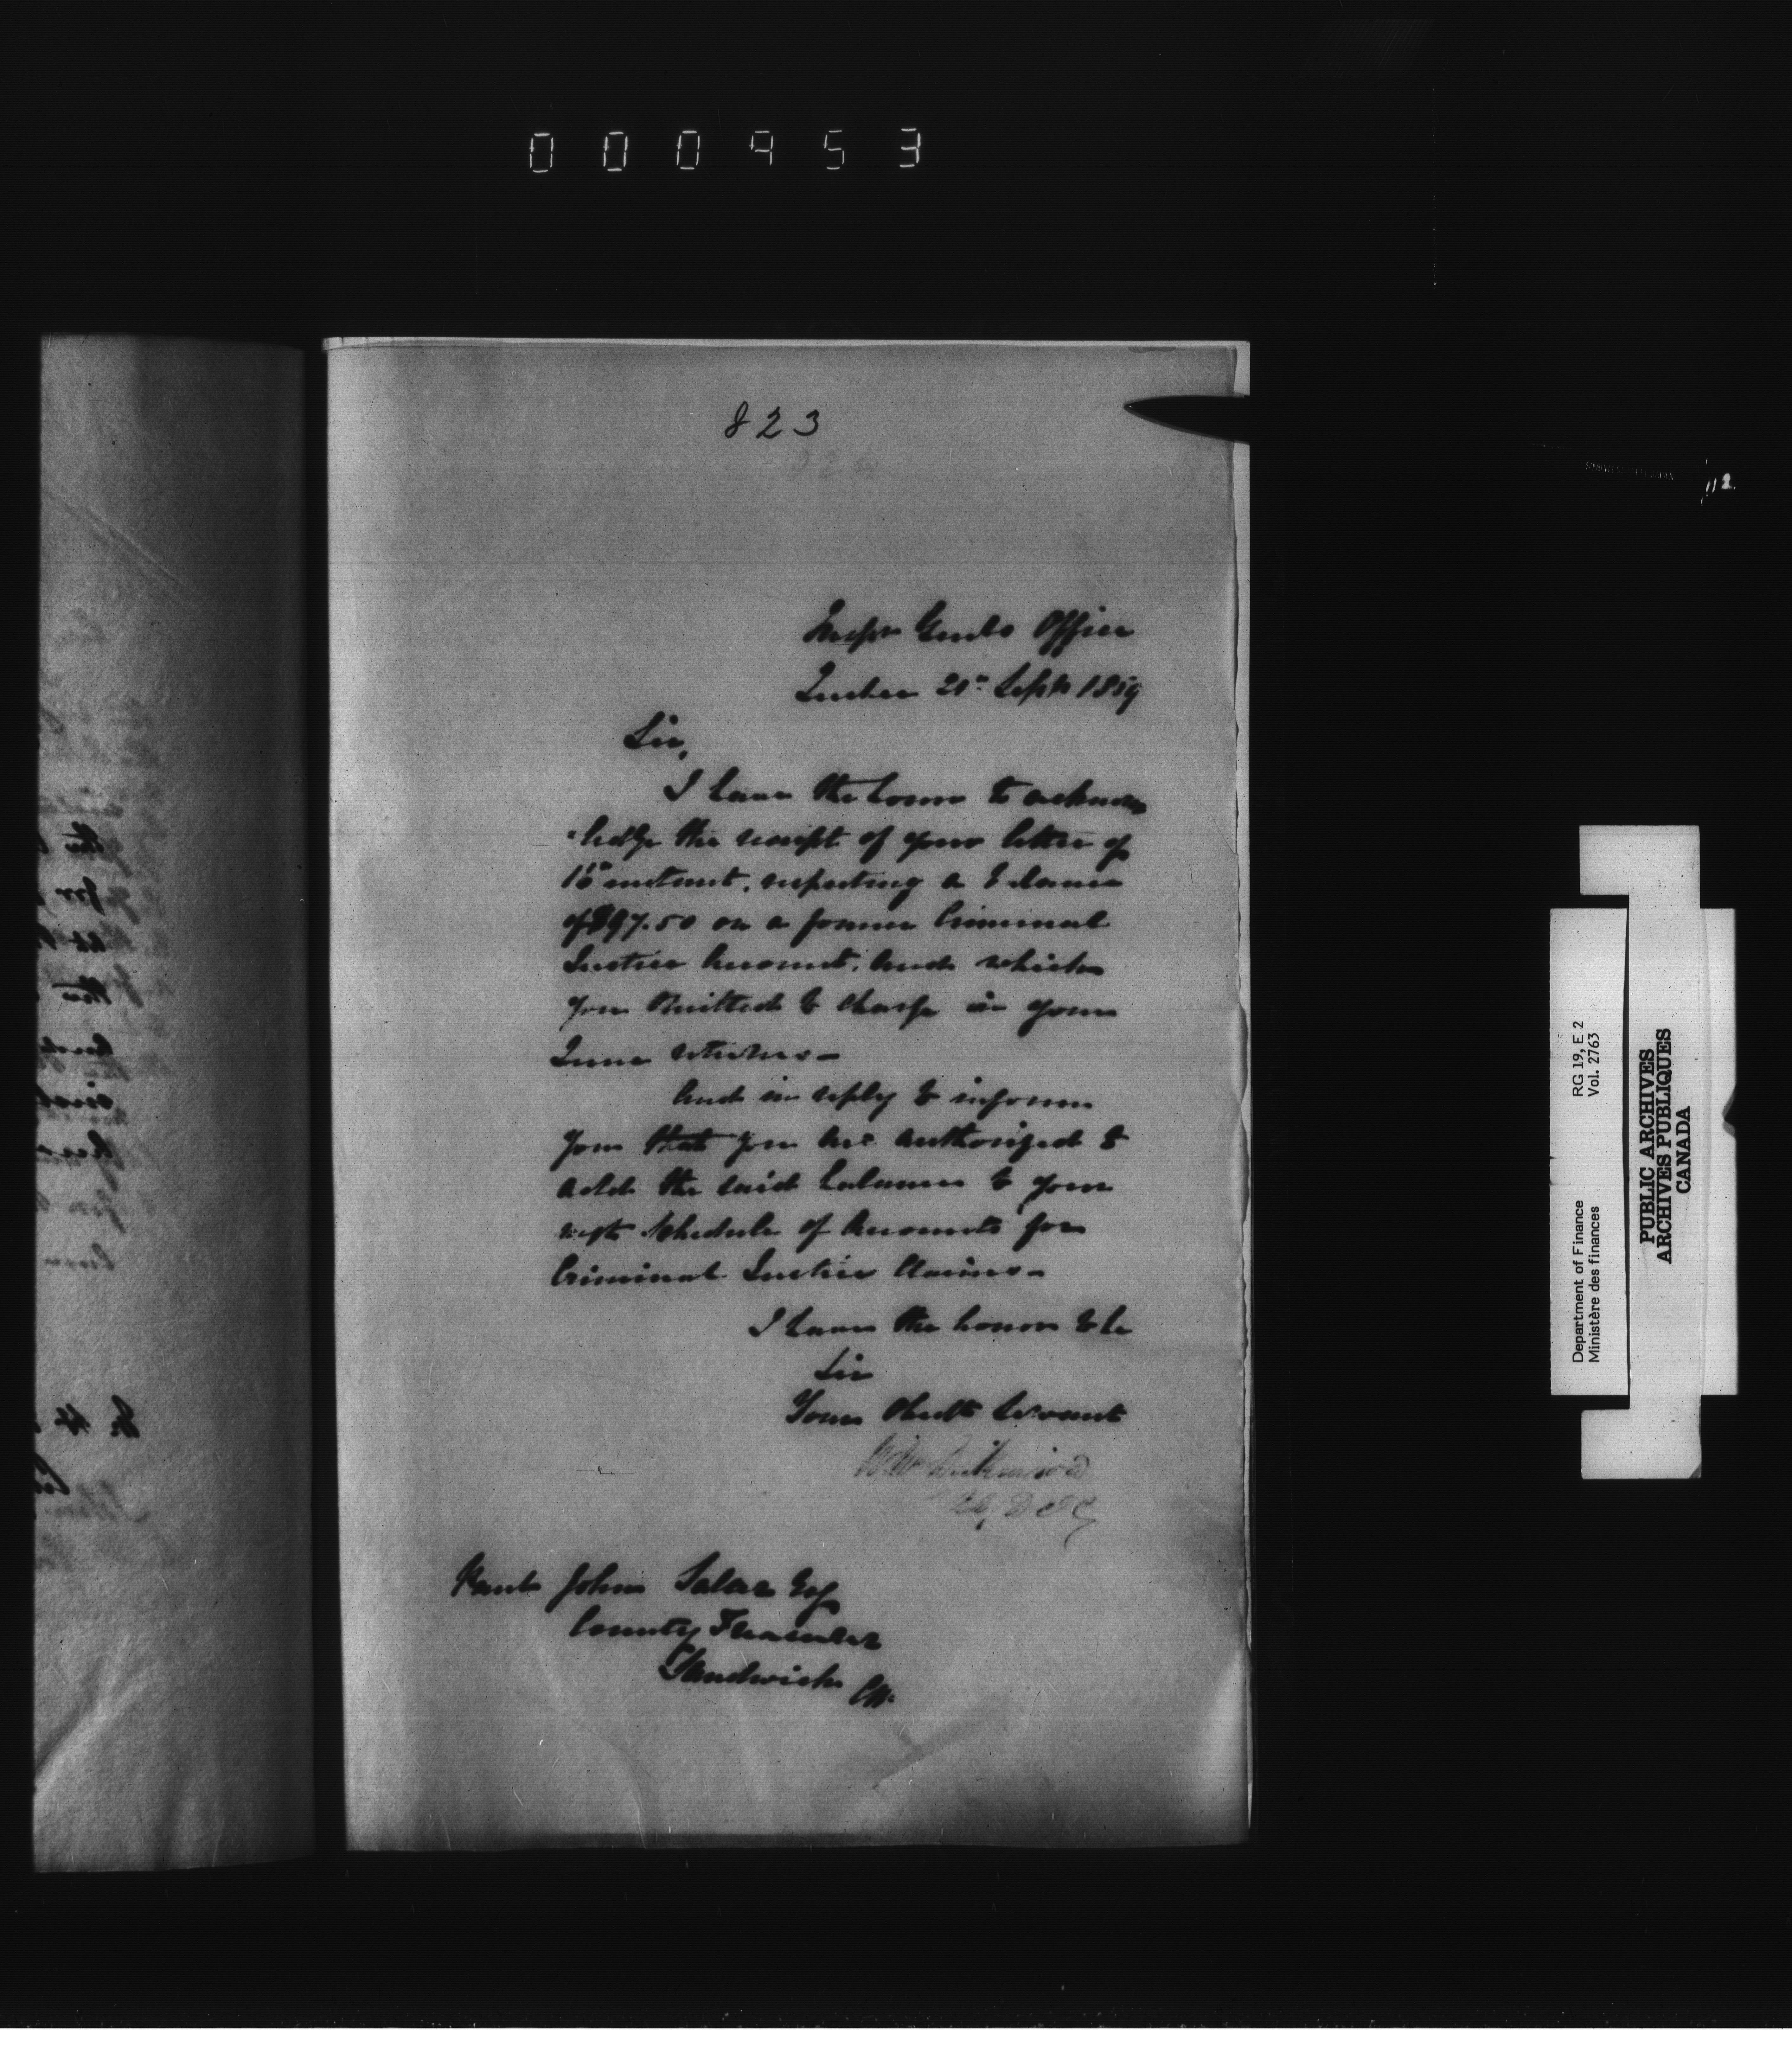 000953
823
Inspr Genls Office
Quebec 21st Septr 1859
Sir,
I have the honor to acknow
-ledge the receipt of your letter of
16th instant, respecting a balance
of $97.50 on a former Criminal
Justice Account, and which
you omitted to charge in your
June returns –
And in reply to inform
you that you are authorized to
add the said balance to your
next Schedule of Accounts for
Criminal Justice Claims –
I have the honor to be
Sir
Your Obedt Servant
Dickinson
Paul John Salter Esq
County Treasurer
Sandwich CW
Department of Finance RG 19, E 2
Ministère des finances Vol. 2763
PUBLIC ARCHIVES
ARCHIVES PUBLIQUES
CANADA